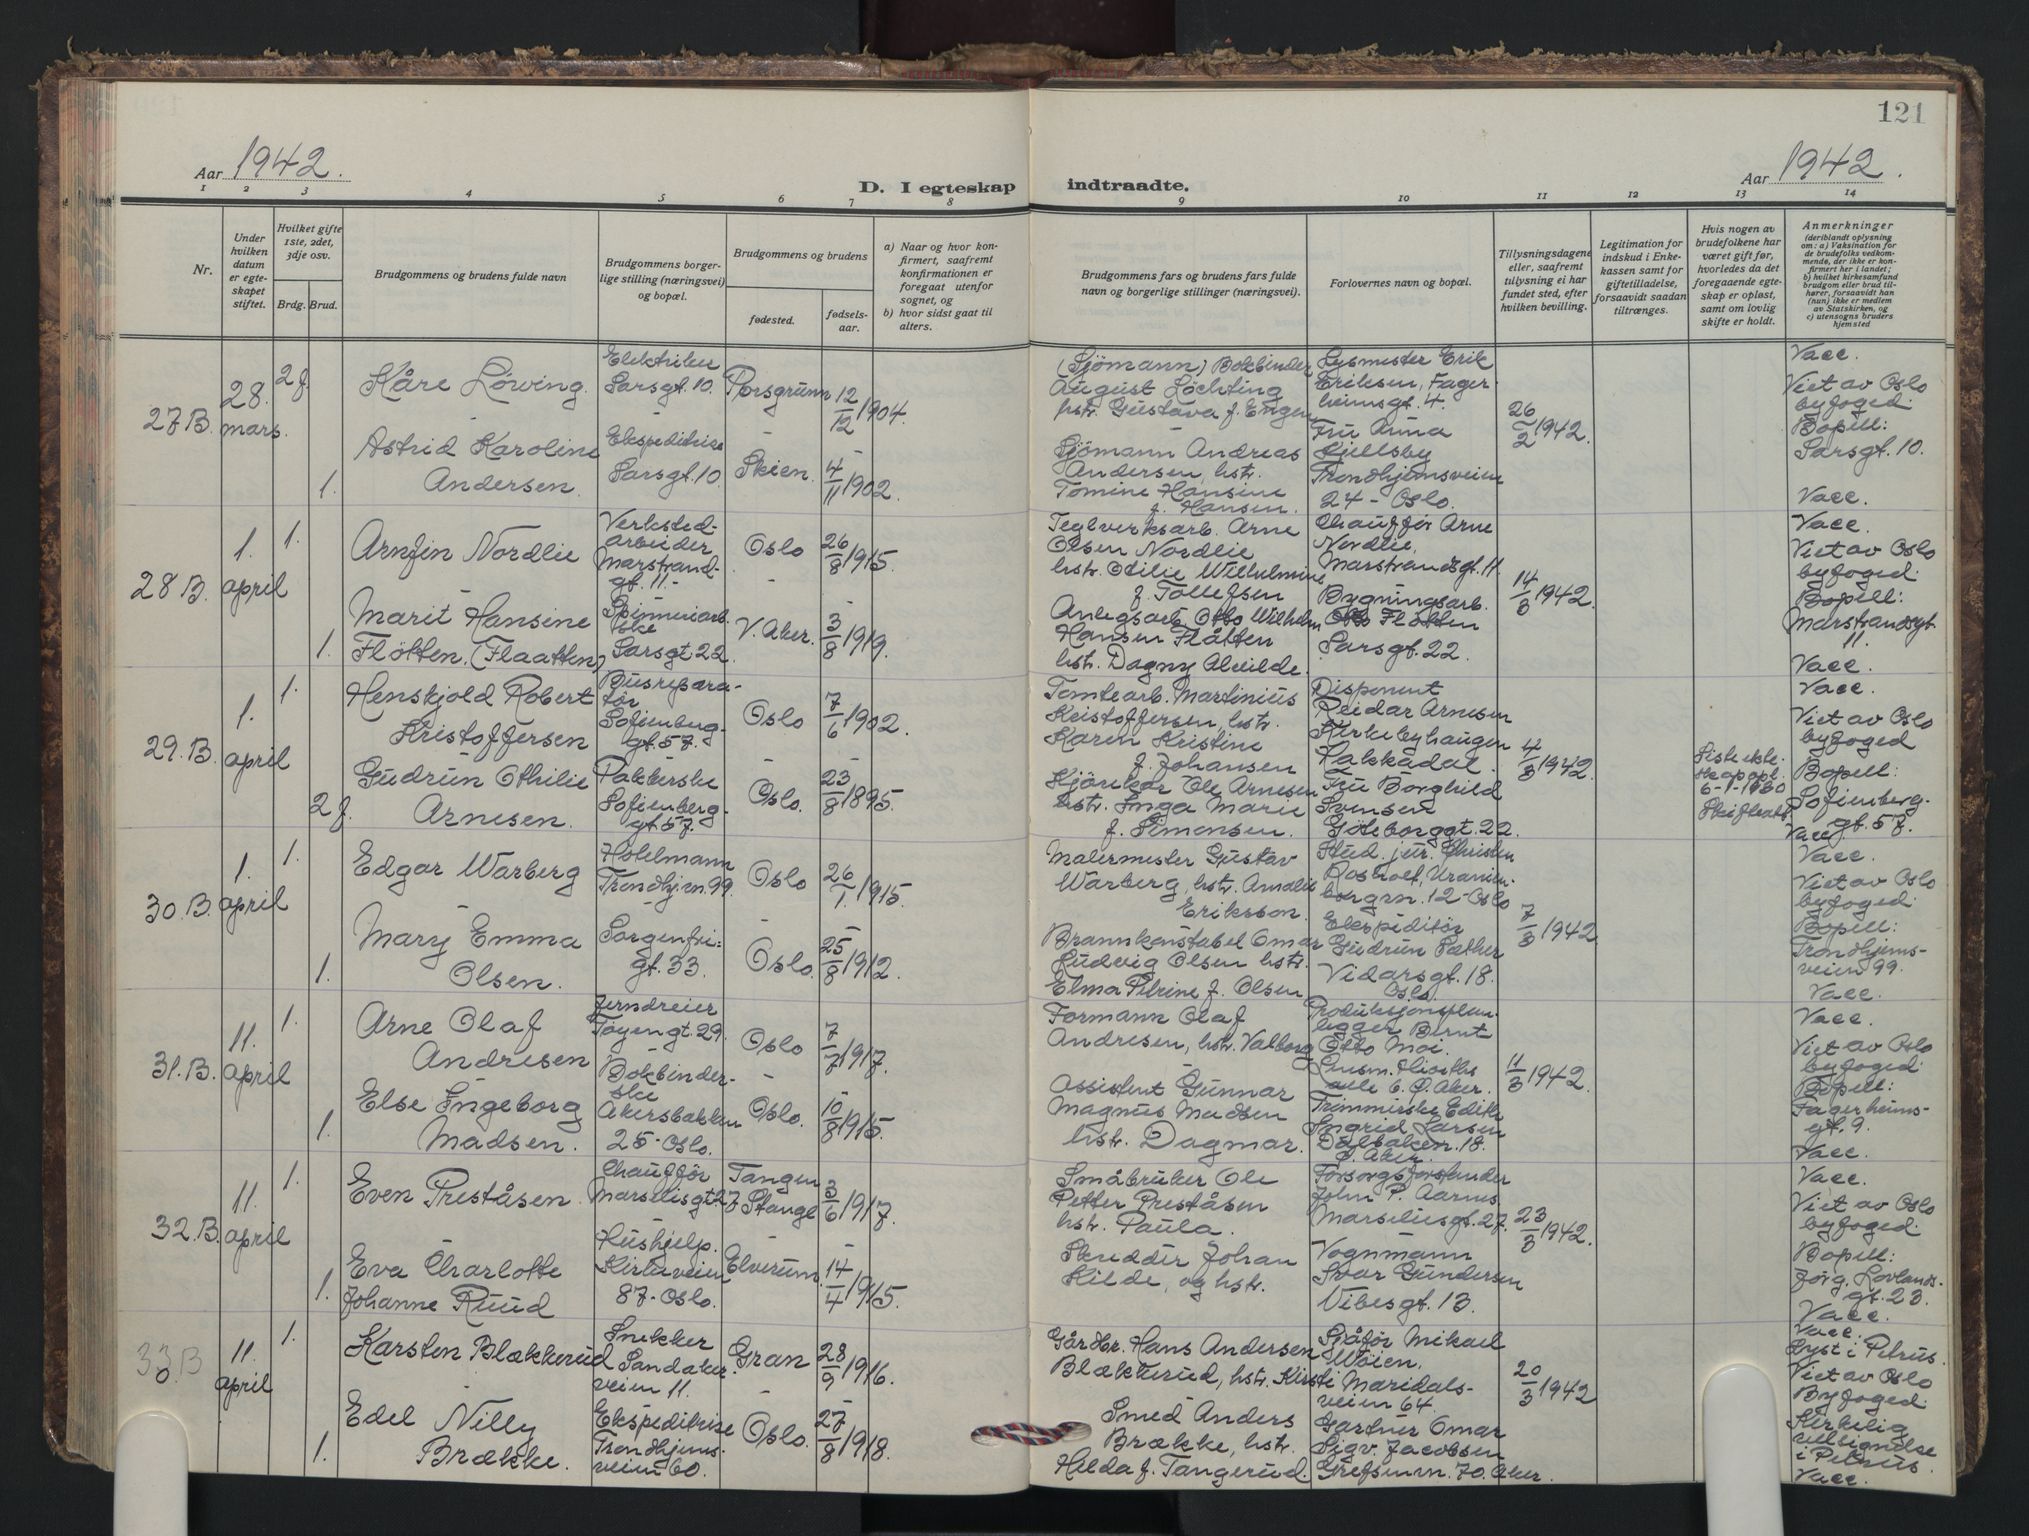 121
Aar 1942.
D. I egteskap indtraadte.
Aar 1942.
1 2 3 4 5 6 7 8 9 10 11 12 13 14
Nr.
Under
hvilken
datum
er egte-
skapet
stiftet.
Hvilket gifte
1ste, 2det,
3dje osv.
Brdg. Brud.
Brudgommens og brudens fulde navn
Brudgommens borger-
lige stilling (næringsvei)
og bopæl.
Brudgommens og brudens
fødested.
fødsels-
aar.
a) Naar og hvor kon-
firmert, saafremt
konfirmationen er
foregaat utenfor
sognet, og
b) hvor sidst gaat til
alters.
Brudgommens fars og brudens fars fulde
navn og borgerlige stillinger (næringsvei).
Forlovernes navn og bopæl.
Tillysningsdagene
eller, saafremt
tillysning ei har
fundet sted, efter
hvilken bevilling.
Legitimation for
indskud i Enke-
kassen samt for
giftetilladelse,
forsaavidt saadan
tiltrænges.
Hvis nogen av
brudefolkene har
været gift før,
hvorledes da det
foregaaende egte-
skap er opløst,
samt om lovlig
skifte er holdt.
Anmerkninger
(deriblandt oplysning
om: a) Vaksination for
de brudefolks vedkom-
mende, der ikke er kon-
firmert her i landet;
b) hvilket kirkesamfund
brudgom eller brud til-
hører, forsaavidt han
(hun) ikke er medlem
av Statskirken, og
c) utensogns bruders
hjemsted
27 B.
28.
mars.
2 f.
Kåre Löwing.
Elektriker
Sarsgt. 10.
Porsgrunn
12/12 1904.
(Sjömann) Bokbinder
August Löchting
hstr. Gustava f. Engen
Lysmester Erik
Eriksen, Fager-
heimsgt. 4.
26/2 1942.
Vacc.
Viet av Oslo
byfoged.
Bopell:
Sarsgt. 10.
1.
Astrid Karoline
Andersen.
Ekspeditrise
Sarsgt. 10.
Skien.
4/11 1902.
Sjömann Andreas
Andersen, hstr.
Tomine Hansine
f. Hansen.
Fru Anna
Kjellsby
Trondhjemsveien
24 - Oslo.
Vacc.
28 B.
1.
april
1.
Arnfin Nordlie
Verksted-
arbeider
Marstrand-
gt. 11.-
Oslo
26/8 1915.
Teglverksarb. Arne
Olsen Nordlie
hstr. Otilie Wilhelmine
f. Tollefsen
Chauffør Arne
Nordlie,
Marstrandsgt. 11.
14/3 1942.
Vacc.
Viet av Oslo
byfoged.
Bopell:
Marstrandsgt.
11.
1.
Marit Hansine
Flötten. (Flaatten)
Spinneriarb.
ske
Sarsgt 22.
V. Aker.
3/8 1919.
Anlegsarb. Otto Wilhelm
Hansen Flåtten
hstr. Dagny Alvilde.
Bygningsarb.
Otto Flötten
Sarsgt. 22.
Vacc.
29. B.
1.
april
1.
Henskjold Robert
Kristoffersen
Busrepara-
tör
Sofienberg-
gt. 57.
Oslo
7/6 1902.
Tomtearb. Martinius
Kristoffersen, hstr.
Karen Kristine
f. Johansen
Disponent
Reidar Arnesen
Kirkebyhaugen
Hakkadal.
4/3 1942.
Vacc.
Viet av Oslo
byfoged
Bopell:
Sofienberg-
gt. 57.
2 f.
Gudrun Othilie
Arnesen.
Pakkerske
Sofienberg-
gt. 57.
Oslo.
23/8 1895.
Kjörekar Ole Arnesen
hstr. Inga Marie
f. Simonsen.
Fru Borghild
Svensen
Göteborggt. 22.
Siste ekte-
skap opl.
Vacc.
30. B.
1.
april
1.
Edgar Warberg
Hotelmann
Trondhj.vn. 99.
Oslo
26/1 1915.
Malermester Gustav
Warberg, hstr. Amalie
Eriksson.
Stud. jur. Christen
12 - Oslo
7/3 1942.
Vacc.
Viet av Oslo
byfoged.
Bopell:
Trondhjems-
veien 99.
1.
Mary Emma
Olsen.
Sorgenfri-
gt. 33.
Oslo.
25/8 1912.
Brannkonstabel Omar
Ludvig Olsen hstr.
Elma Petrine f. Olsen
Ekspeditör
Gudrun Sæther
Vidarsgt. 18.
Oslo.
Vacc.
31. B.
11.
april
1.
Arne Olaf
Andresen
Jerndreier
Töyengt. 29.
Oslo
7/7 1917.
Formann Olaf
Andresen, hstr. Valborg
Produksjonsplan-
legger Bernt
Otto Moi.
11/3 1942.
Vacc.
Viet av Oslo
byfoged.
Bopell:
Fagerheims-
gt. 9.
1.
Else Ingeborg
Madsen.
Bokbinder-
ske
Akersbakken
25 - Oslo.
Oslo.
10/8 1915.
Assistent Gunnar
Magnus Madsen
hstr. Dagmar.
Trimmerske Edith
Ingrid Larsen
18.
Ö. Aker.
Vacc.
32. B.
11.
april
1.
Even Preståsen
Chauffør
Marseliisgt. 27
Tangen
Stange
3/6 1917.
Småbruker Ole
Petter Preståsen
hstr. Paula.
Forsorgsforstander
John P. Aarnes
Marseliesgt. 27.
23/3 1942.
Vacc.
Viet av Oslo
byfoged.
Bopell:
Jörg. Lovlands-
gt. 23.
1.
Eva Charlotte
Johanne Ruud
Hushjelp.
Kirkeveien
87 - Oslo.
Elverum.
14/4 1915.
Skredder Johan
Kilde, og hstr.
Vognmann
Ivar Gundersen
Vibesgt. 13.
Vacc.
33 B
11.
april
1.
Karsten Blækkerud
Snekker
Sandaker-
veien 11.
Gran
28/9 1916.
Gårdbr. Hans Andersen
Blækkerud, hstr. Kirsti
Sjåför Mikael
Wöien,
Maridals-
veien 64.
20/3 1942
Vacc.
Lyst i Petrus.
Viet av Oslo
Byfoged.
Kirkelig
velsignelse
i Petrus.
1.
Edel Nilly
Brække.
Ekspeditrise
Trondhjems-
veien 60.
Oslo.
27/8 1918.
Smed Anders
Brække, hstr.
Hilda f. Tangerud.
Gartner Omar
Sigv. Jacobsen
Grefsenvn. 70. Aker.
Vacc.